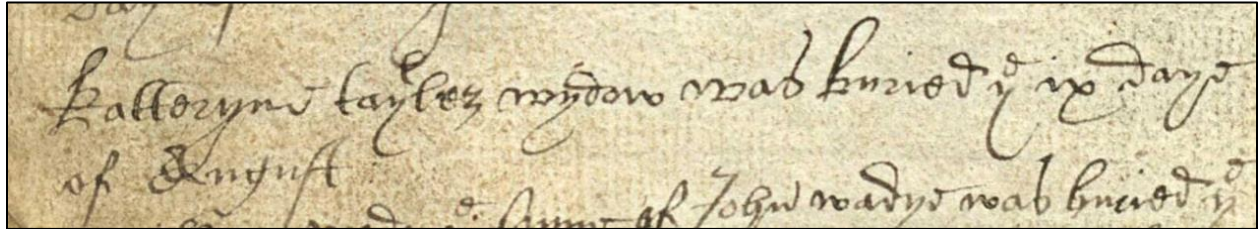 Katteryne tayler wydow was buried yᵉ ix daye
of August
sonne of John wadye was buried yᵉ